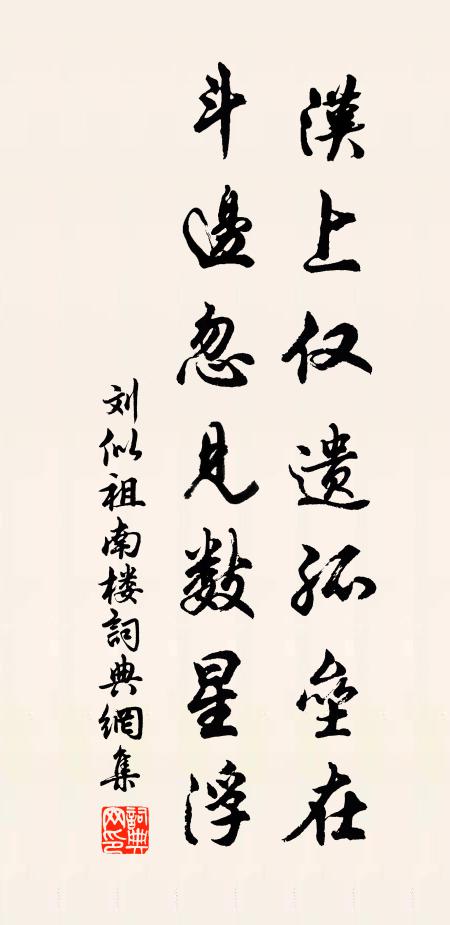 漢上仅遗孤垒在
斗邊忽見数星浮
刘似祖南楼詞典網集
詞典網印